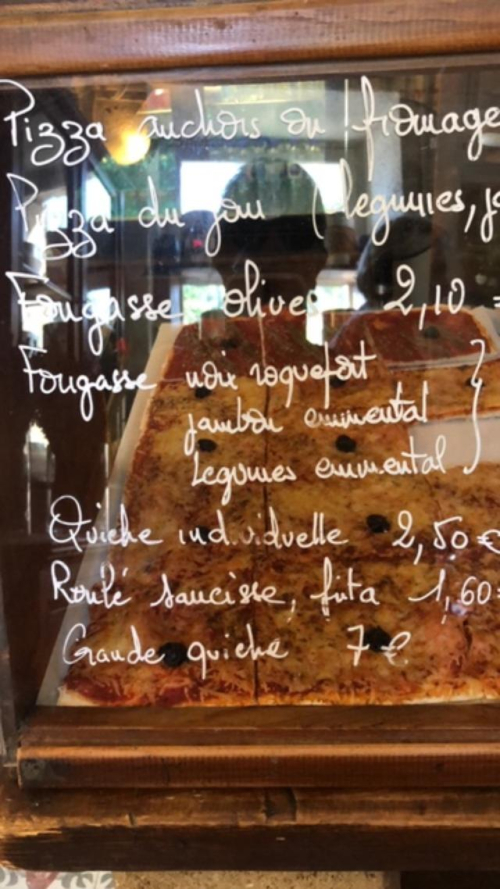 Pizza anchois ou fromage
Pizza du jour (legumes,
Fougasse olives 2,10
Fougasse noix roquefort
jambon emmental
Legumes emmental
Quiche individuelle 2,50 €
Roulé saucisse, feta 1,60
Grande quiche 7 €